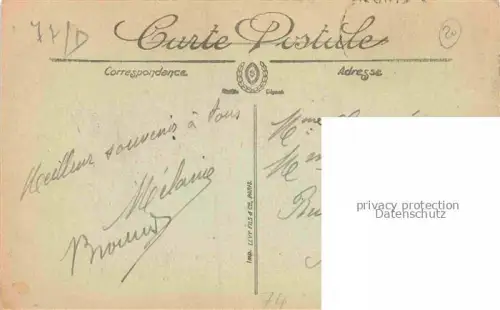 77/D
20
Carte Postale
Correspondance
Adresse
Meilleur souvenir à tous
Mélanie
Mme
Mm
Imp. LEVY FILS & CIE, PARIS.
74
privacy protection
Datenschutz